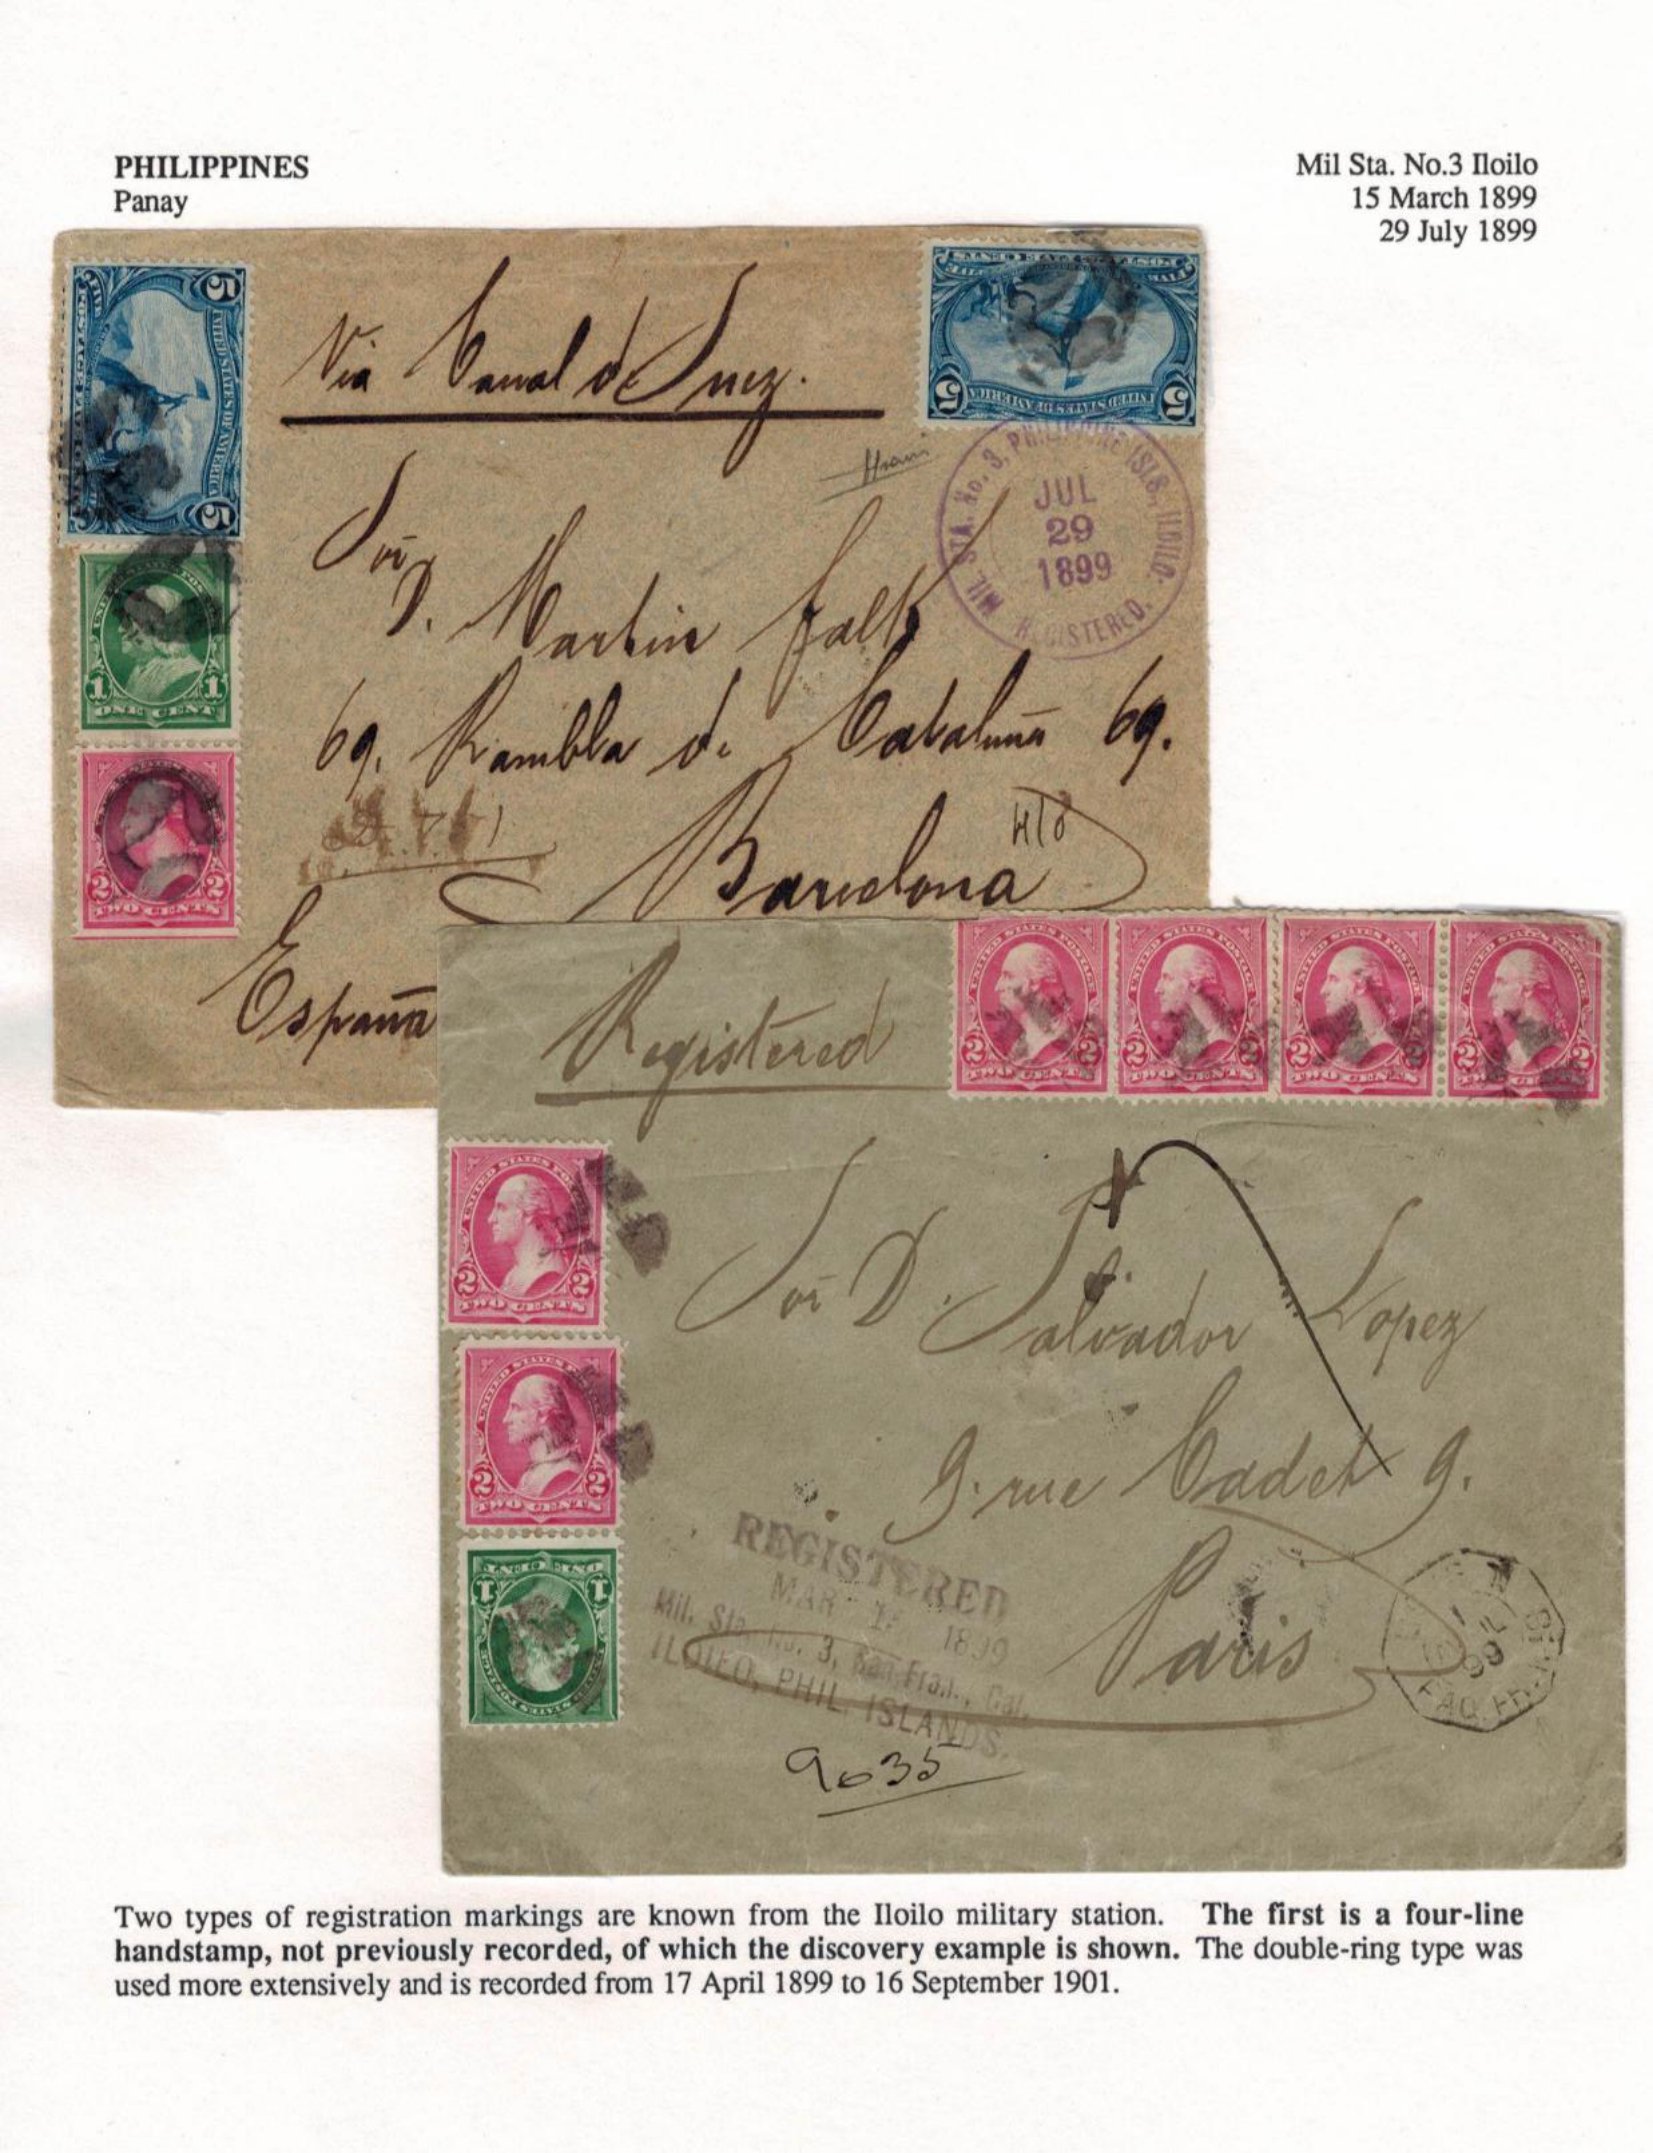 PHILIPPINES
Panay
Mil Sta. No.3 Iloilo
15 March 1899
29 July 1899
Via Canal de Suez.
5
5
UNITED STATES OF AMERICA
5
5
UNITED STATES OF AMERICA
MIL. STA. No. 3, PHILIPPINE ISLS., ILOILO.
JUL
29
1899
REGISTERED.
Sor
D. Martin Falk
1 1
ONE CENT
69. Rambla de Cataluña 69.
2 2
TWO CENTS
Barcelona
España
Registered
UNITED STATES POSTAGE
2 2
TWO CENTS
UNITED STATES POSTAGE
2 2
TWO CENTS
UNITED STATES POSTAGE
2 2
TWO CENTS
UNITED STATES POSTAGE
2 2
TWO CENTS
UNITED STATES POSTAGE
2 2
TWO CENTS
Sor D. Salvador Lopez
UNITED STATES POSTAGE
2 2
TWO CENTS
9. rue Cadet 9.
Paris
ONE CENT
1 1
REGISTERED
MAR 1 1899
Mil. Sta. No. 3, San Fran., Cal.
ILOILO, PHIL. ISLANDS.
99
PAQ. FR.
9035
Two types of registration markings are known from the Iloilo military station. The first is a four-line
handstamp, not previously recorded, of which the discovery example is shown. The double-ring type was
used more extensively and is recorded from 17 April 1899 to 16 September 1901.